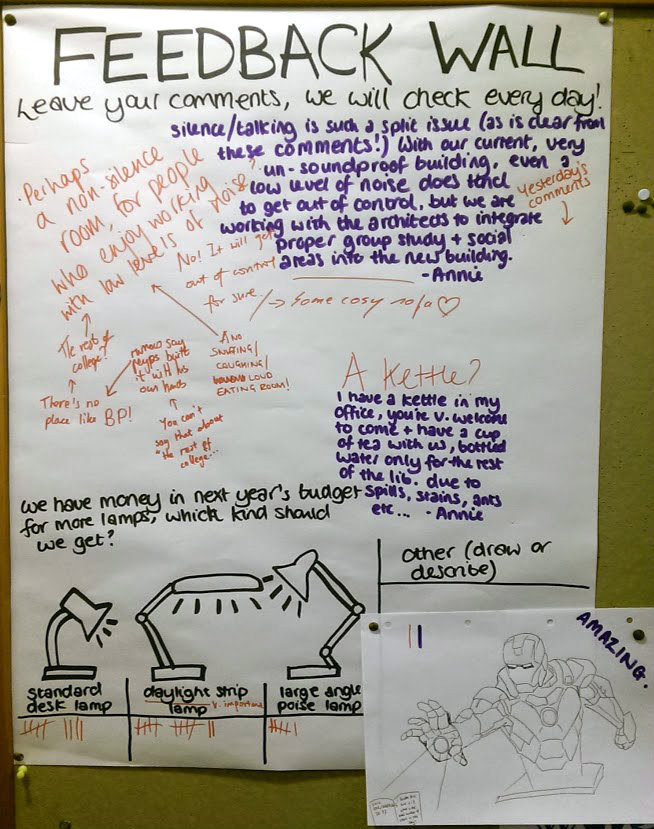 FEEDBACK WALL
Leave your comments, we will check every day!
silence/talking is such a split issue (as is clear from
these comments!) With our current, very
un-soundproof building, even a
low level of noise does tend
to get out of control. but we are
working with the architects to integrate
proper group study + social
areas into the new building.
- Annie
Yesterday's
comments
Perhaps
a non-silence
room, for people
who enjoy working
with low levels of noise?
No! It will get
out of control
for sure.
Some cosy sofa
The rest of
college?
There's no
place like BP!
built
it with his
own hands
You can't
say that about
"the rest of
college...
AND
SNIFFING/
COUGHING/
LOUD
EATING ROOM!
A Kettle?
I have a kettle in my
office, you're v. welcome
to come + have a cup
of tea with us, bottled
water only for the rest
of the lib. due to
spills, stains, ants
etc... - Annie
we have money in next year's budget
for more lamps, which kind should
we get?
other (draw or
describe)
standard
desk lamp
daylight strip
lamp
v. important
large angle
poise lamp
AMAZING.